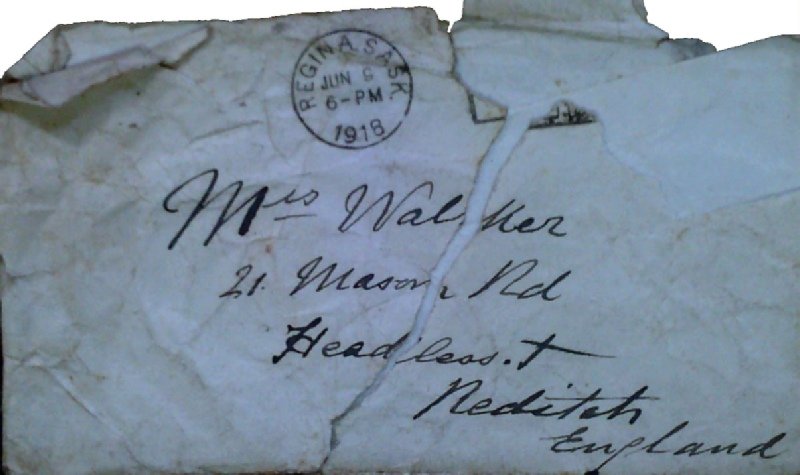 REGINA. SASK.
JUN 8
6-PM
1918
Mrs Walker
21. Mason Rd
Headless. +
Reditch
England